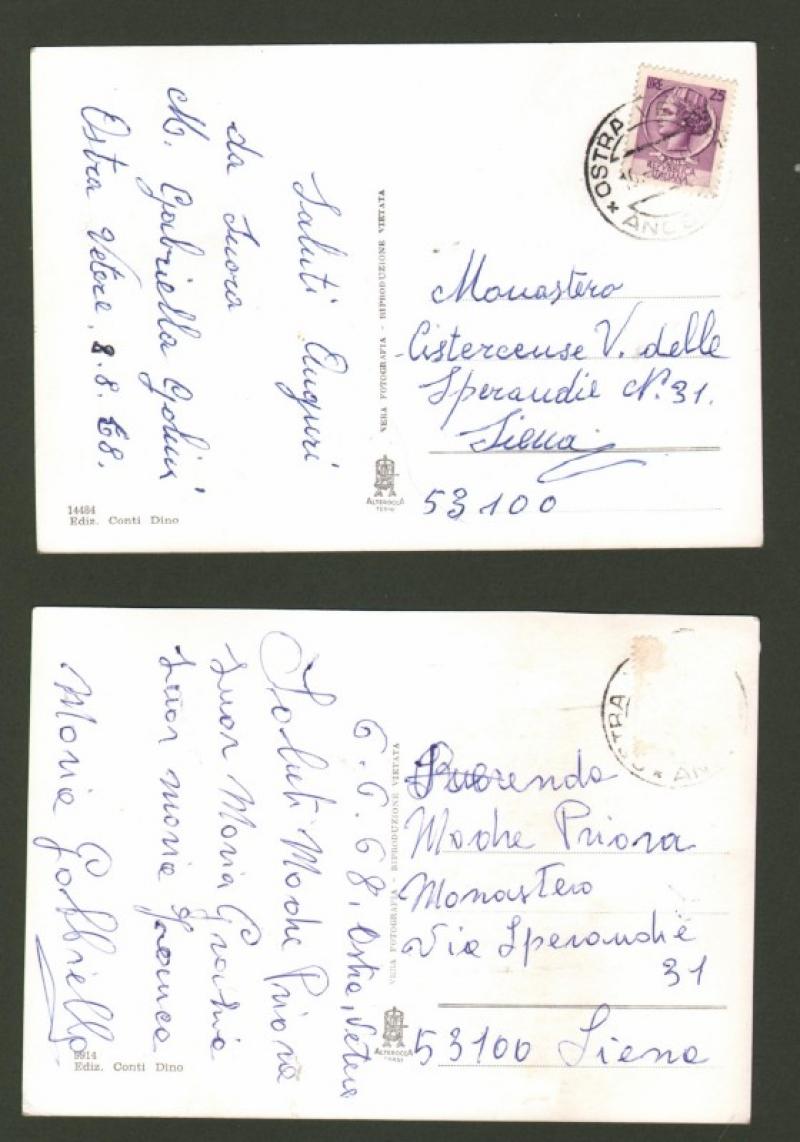 Saluti Auguri
da Suora
M. Gabriella Golini
Ostra Vetere, 8.8.68.
VERA FOTOGRAFIA - RIPRODUZIONE VIETATA
LIRE 25
OSTRA VE
ANCO
Monastero
Cistercense V. delle
Sperandie N. 31.
Siena
53100
ALTEROCCA
TERNI
14484
Ediz. Conti Dino
6.6.68, Ostra, Vetere
Saluti Madre Priora
Suor Maria
Suor Maria Franca
Maria Gabbriella
VERA FOTOGRAFIA - RIPRODUZIONE VIETATA
STRA
AN
Reverenda
Madre Priora
Monastero
Via Sperandie
31
53100 Siena
ALTEROCCA
TERNI
9914
Ediz. Conti Dino